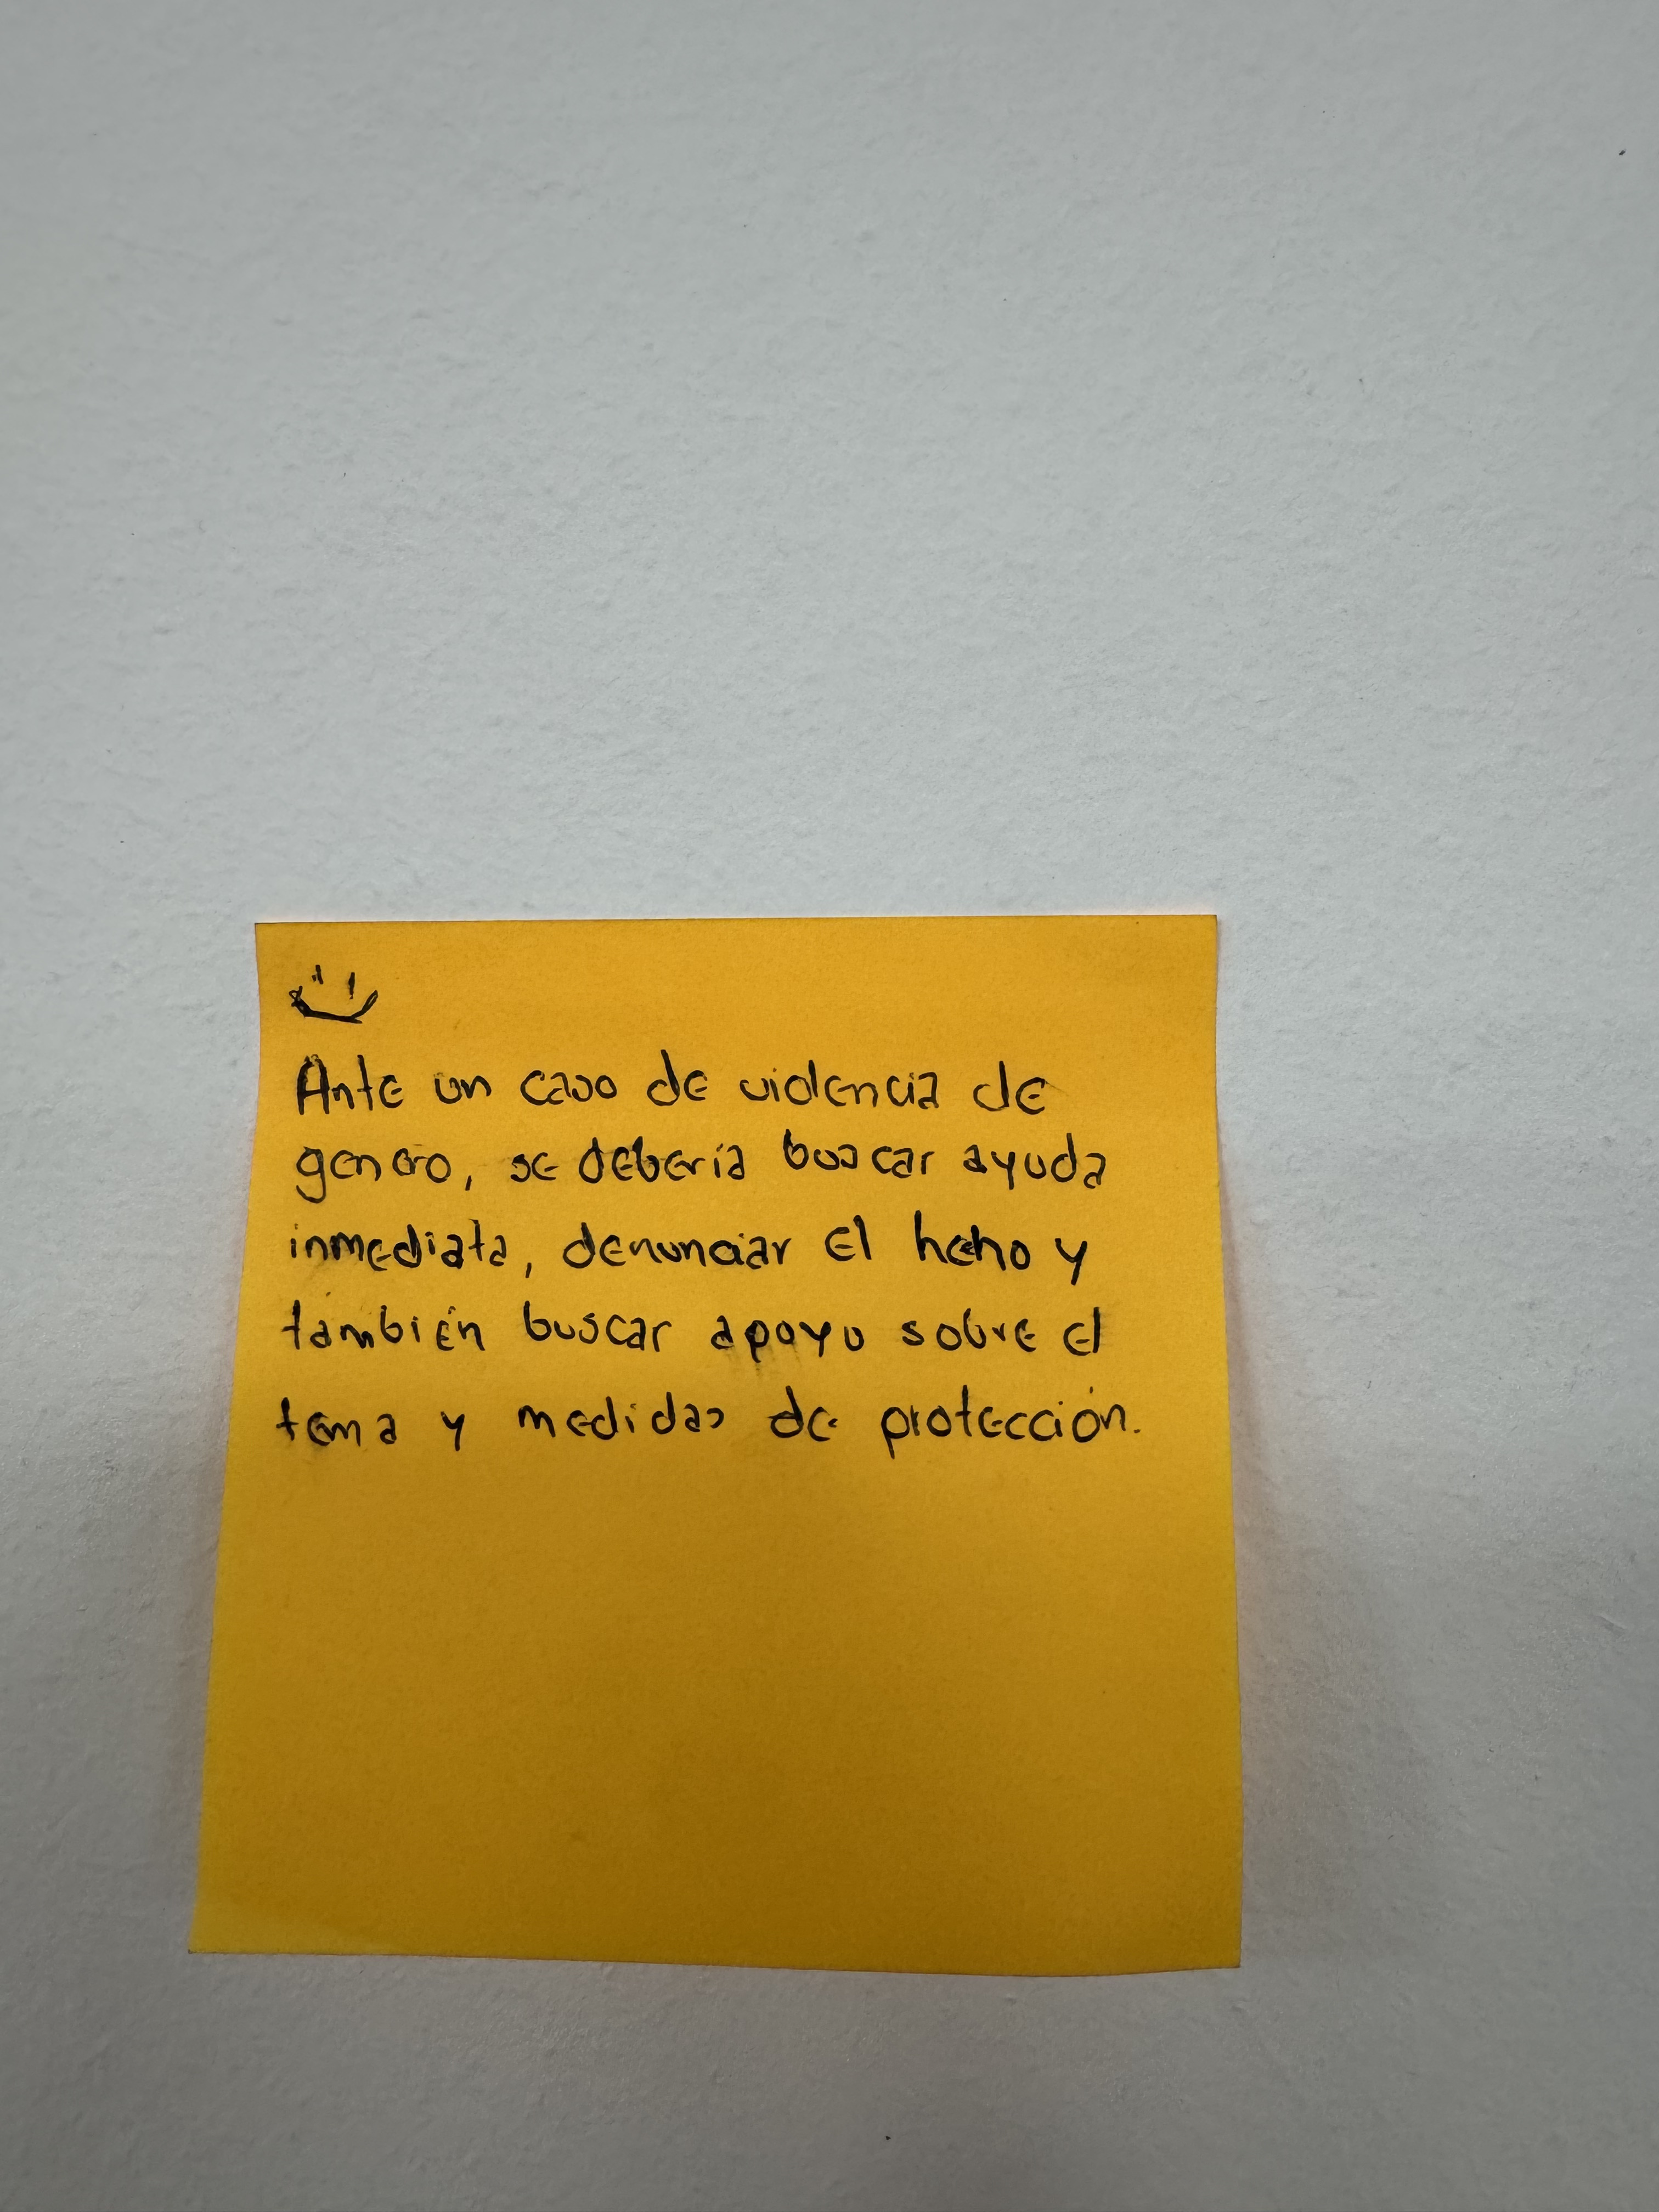 Ante un caso de violencia de
genero, se debería buscar ayuda
inmediata, denunciar el hecho y
también buscar apoyo sobre el
tema y medidas de protección.